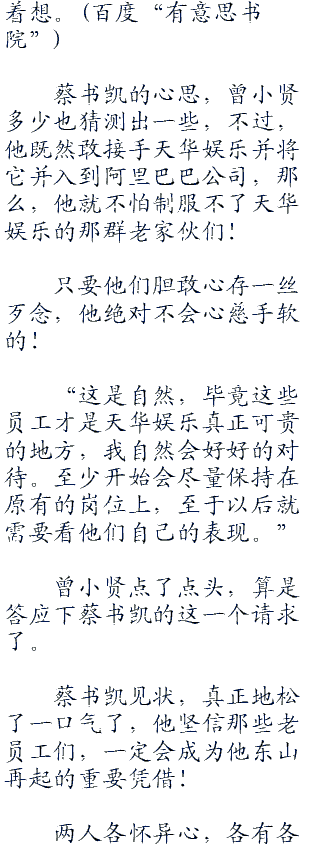 着想。(百度“有意思书
院”)
蔡书凯的心思，曾小贤
多少也猜测出一些，不过，
他既然敢接手天华娱乐并将
它并入到阿里巴巴公司，那
么，他就不怕制服不了天华
娱乐的那群老家伙们！
只要他们胆敢心存一丝
歹念，他绝对不会心慈手软
的！
“这是自然，毕竟这些
员工才是天华娱乐真正可贵
的地方，我自然会好好的对
待。至少开始会尽量保持在
原有的岗位上，至于以后就
需要看他们自己的表现。”
曾小贤点了点头，算是
答应下蔡书凯的这一个请求
了。
蔡书凯见状，真正地松
了一口气了，他坚信那些老
员工们，一定会成为他东山
再起的重要凭借！
两人各怀异心，各有各